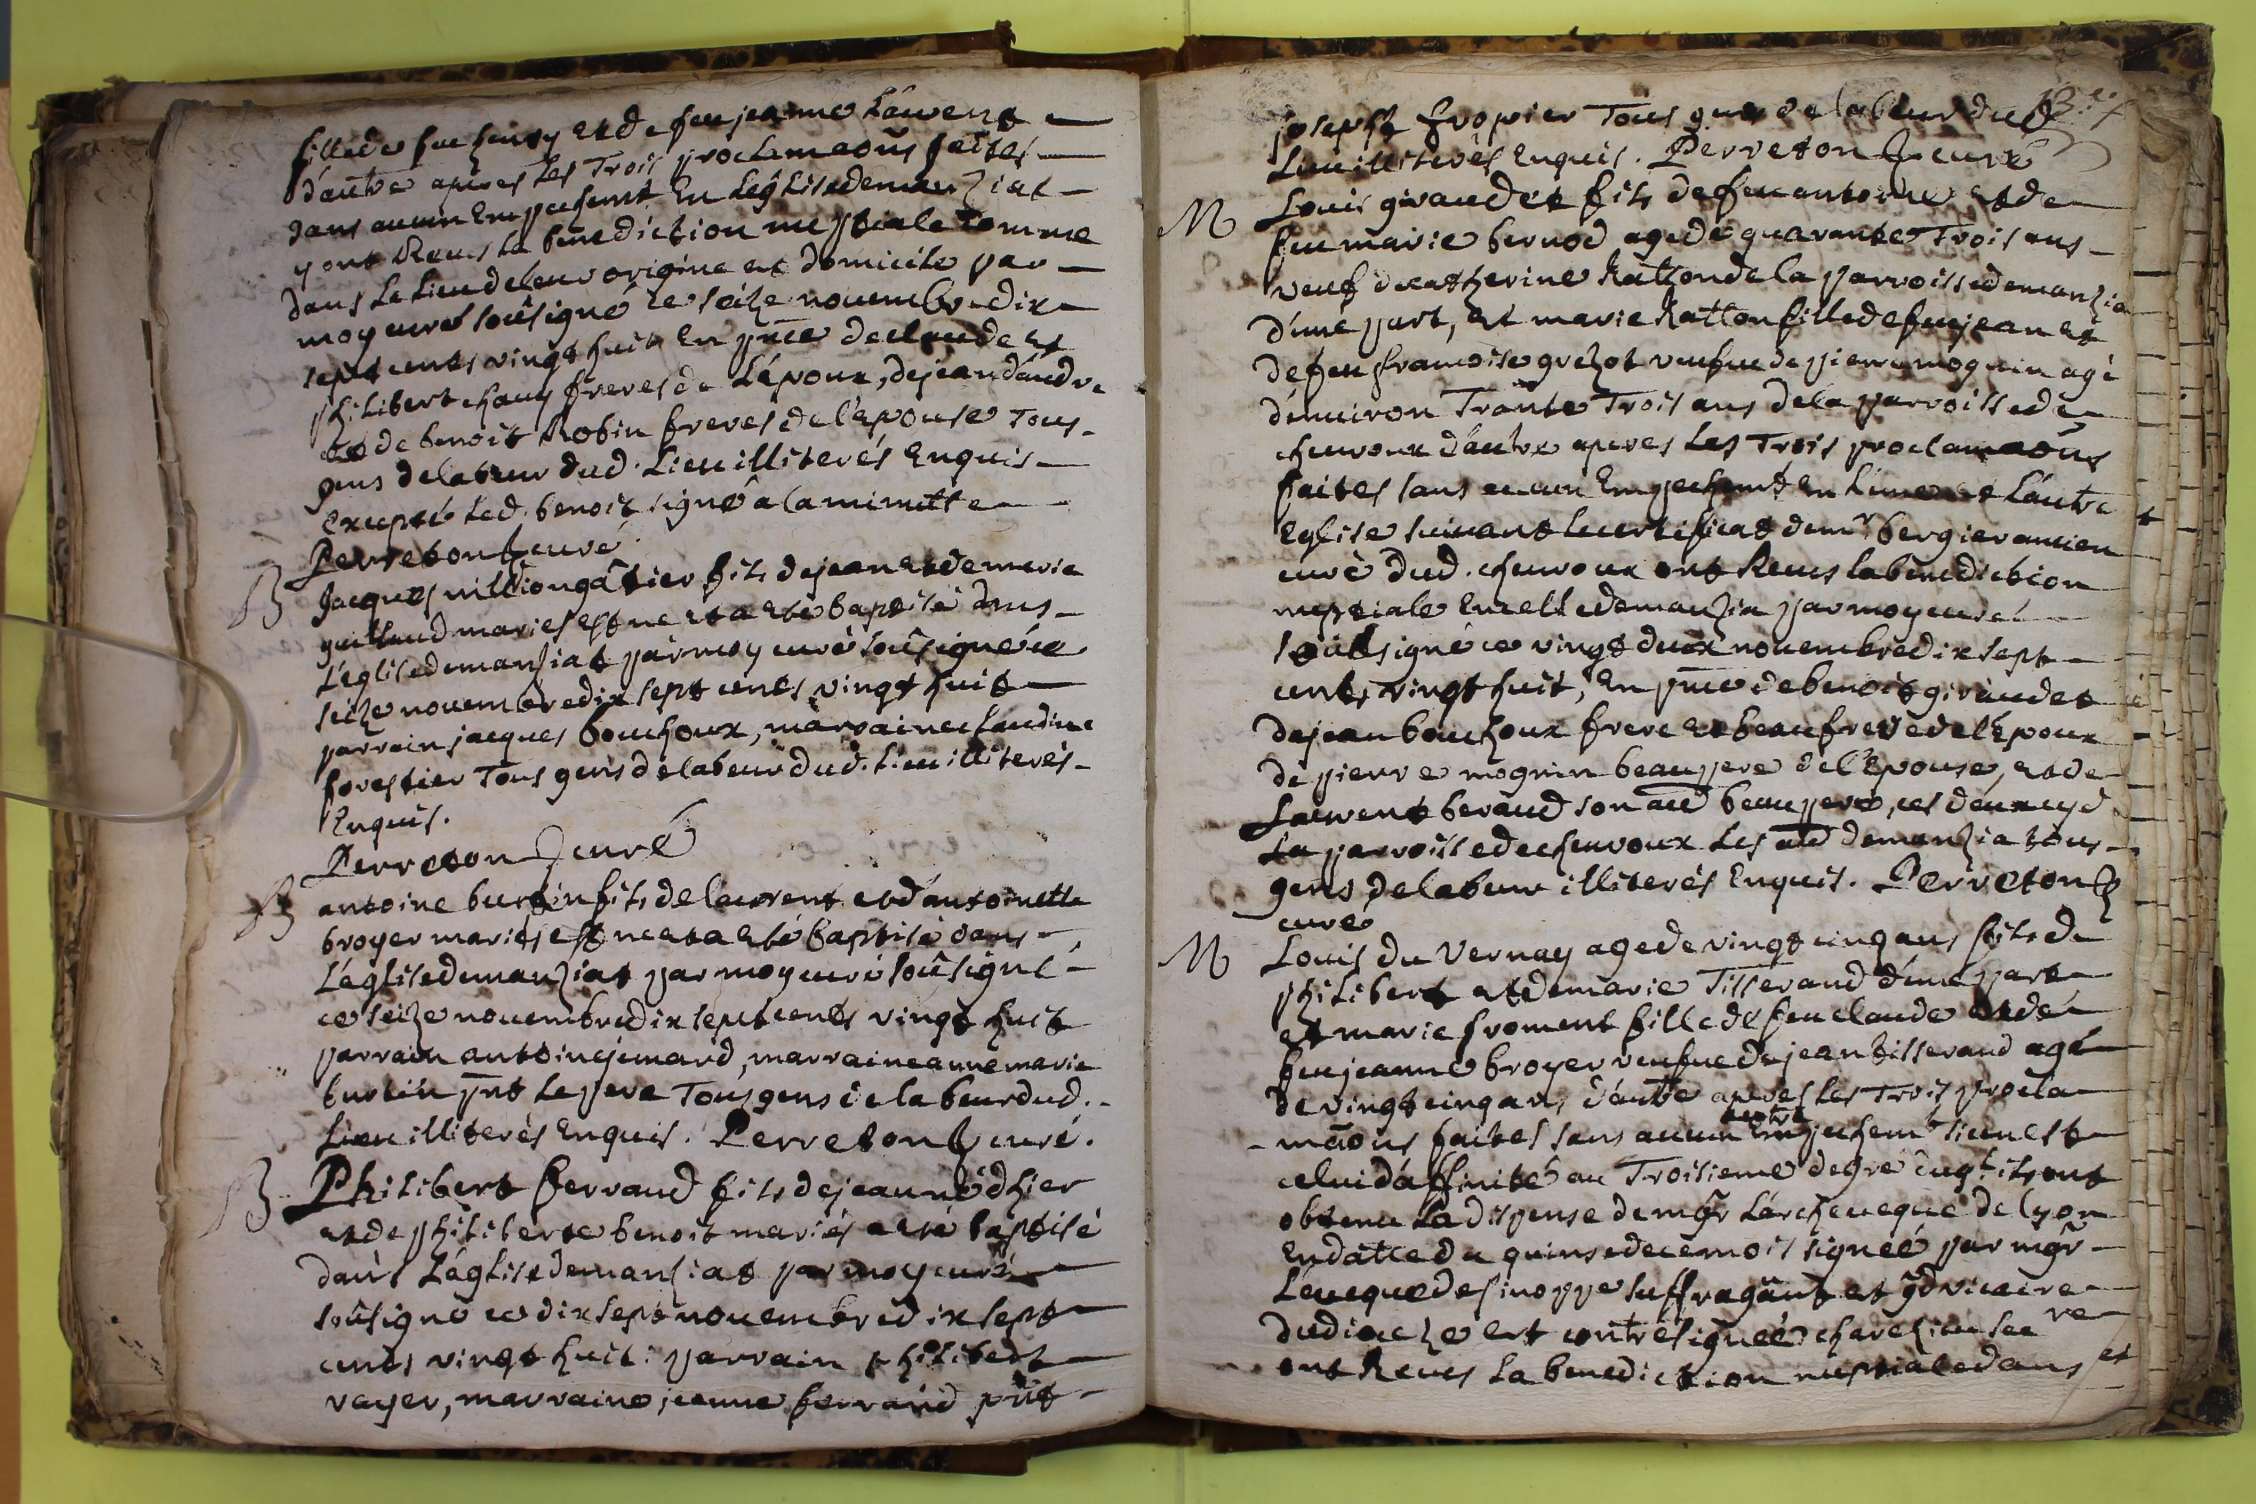 fille de feu henry et de feu jeanne Laurent
d'autre apres les Trois proclamaõns faites
sans aucun Empechemt En Leglise de manziat
y ont Receus la benediction nuptiale comme
dans Le Lieu de leur origine et domicile par
moy curé soûsigné ce seize novembre dix
sept cents vingt huit En pñce de claude et
philibert chany freres de L'époux, de jean dandre
et de benoit Robin freres de l'epouse Tous
gens de labeur dud. Lieu illiterés Enquis
Excepté led. benoit signé a la minutte
Perreton curé
B
Jacques nillion gâtier fils de jean et de marie
guillaud mariés est né et a eté baptisé dans
L'église de manziat par moy curé soûsigné ce
seize novembre dix sept cents vingt huit
parrain jacques bouchoux, marraine claudine
forestier Tous gens de labeur dud. Lieu illiterés
Enquis.
Perreton curé
B
antoine burtin fils de laurent et d'antoinette
broyer mariés est né et a eté baptisé dans
L'église de manziat par moy curé soûsigné
ce seize novembre dix sept cents vingt huit
parrain antoine jemard, marraine anne marie
burtin pñt Le pere Tous gens de labeur dud.
Lieu illiterés Enquis. Perreton curé.
B
Philibert ferrand fils de jean
et de philiberte benoit mariés a eté baptisé
dans L'église de manziat par moy curé
soûsigné ce dix sept novembre dix sept
cents vingt huit: parrain philibert
vayer, marraine jeanne ferrand pñt
joseph fropier Tous gens de labeur dud
Lieu illiterés Enquis. Perreton curé
M
Louis giraudet fils de feu antoine et de
feu marie bernod agé de quarante Trois ans
veuf de catherine Ratton de la parroisse de manzia
d'une part, et marie Ratton fille de feu jean et
de feu francoise grezot veufue de pierre moguin agé
d'environ Trante Trois ans de la parroisse de
chevroux d'autre apres Les Trois proclamaõns
faites sans aucun Empechemt en L'une et L'autre
Eglise suivant le certificat de mr bergier ancien
curé dud. chevroux ont Receus la benediction
nuptiale en celle de manzia par moy curé
soûsigné ce vingt deux novembre dix sept
cents vingt huit, En pñce de benoit giraudet
de jean bouchoux frere et beaufrere de l'Epoux
de pierre moguin beaupere de l'Epouse, et de
Laurent beraud son beaupere, ces deux cy d
La parroisse de chevroux Les de manzia tous
gens de labeur illiterés Enquis. Perreton
curé
M
Louis du Vernay agé de vingt cinq ans fils de
philibert et de marie Tisserand d'une part
et marie froment fille de feu claude et de
feu jeanne broyer veufue de jean tisserand agé
de vingt cinq ans, d'autre apres Les Trois procla
maõns faites sans aucun autre Empechemt sinon est
celui d'affinité au Troisieme degré duql ils ont
obtenu La dispense de mgr L'archeveque de Lyon
En datte du quinse de ce mois signée par mgr
L'eveque de sinoppe suffragant et gd vicaire
du dioceze et contresignée
ont Receus La benediction nuptiale dans